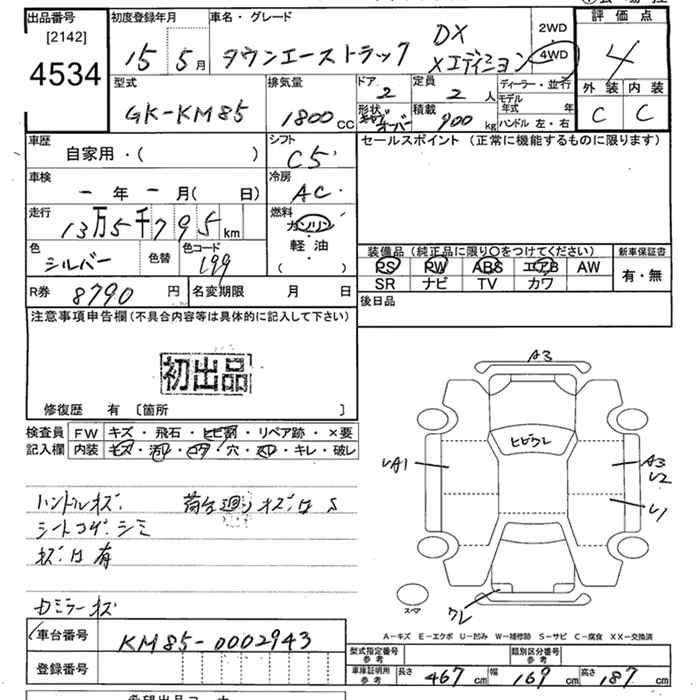 出品番号 [2142] 4534
初度登録年月 15 5月
車名・グレード タウンエーストラック DX Xエディション
2WD 4WD
評価点 4
外装 内装
C C
型式 GK-KM85
排気量 1800cc
ドア 2 定員 2人
形状 積載 900kg
ディーラー・並行
モデル年式 年
ハンドル 左・右
車歴 自家用・( )
シフト C5
セールスポイント(正常に機能するものに限ります)
車検 ー年ー月( 日)
冷房 AC
走行 13万5千795km
燃料 ガソリン 軽油 ( )
色 シルバー 色替 色コード 199
装備品(純正品に限り○をつけてください) 新車保証書
PS PW ABS エアB AW 有・無
SR ナビ TV カワ
R券 8790円 名変期限 月 日
後日品
注意事項申告欄(不具合内容等は具体的に記入して下さい)
初出品
修復歴 有 〔箇所 〕
検査員記入欄 FW キズ・飛石・ヒビ割・リペア跡・×要
内装 キズ・汚レ・コゲ・穴・スレ・キレ・破レ
ハンドルキズ 荷台廻りキズは S
シートコゲ シミ
キズは有
ミラーキズ
A3
ヒビワレ
UA1
A3
U2
U1
ワレ
スペア
A-キズ E-エクボ U-凹み W-補修跡 S-サビ C-腐食 XX-交換済
車台番号 KM85-0002943
登録番号
型式指定番号 参考 類別区分番号 参考
車庫証明用 参考 長さ 467cm 幅 169cm 高さ 187cm